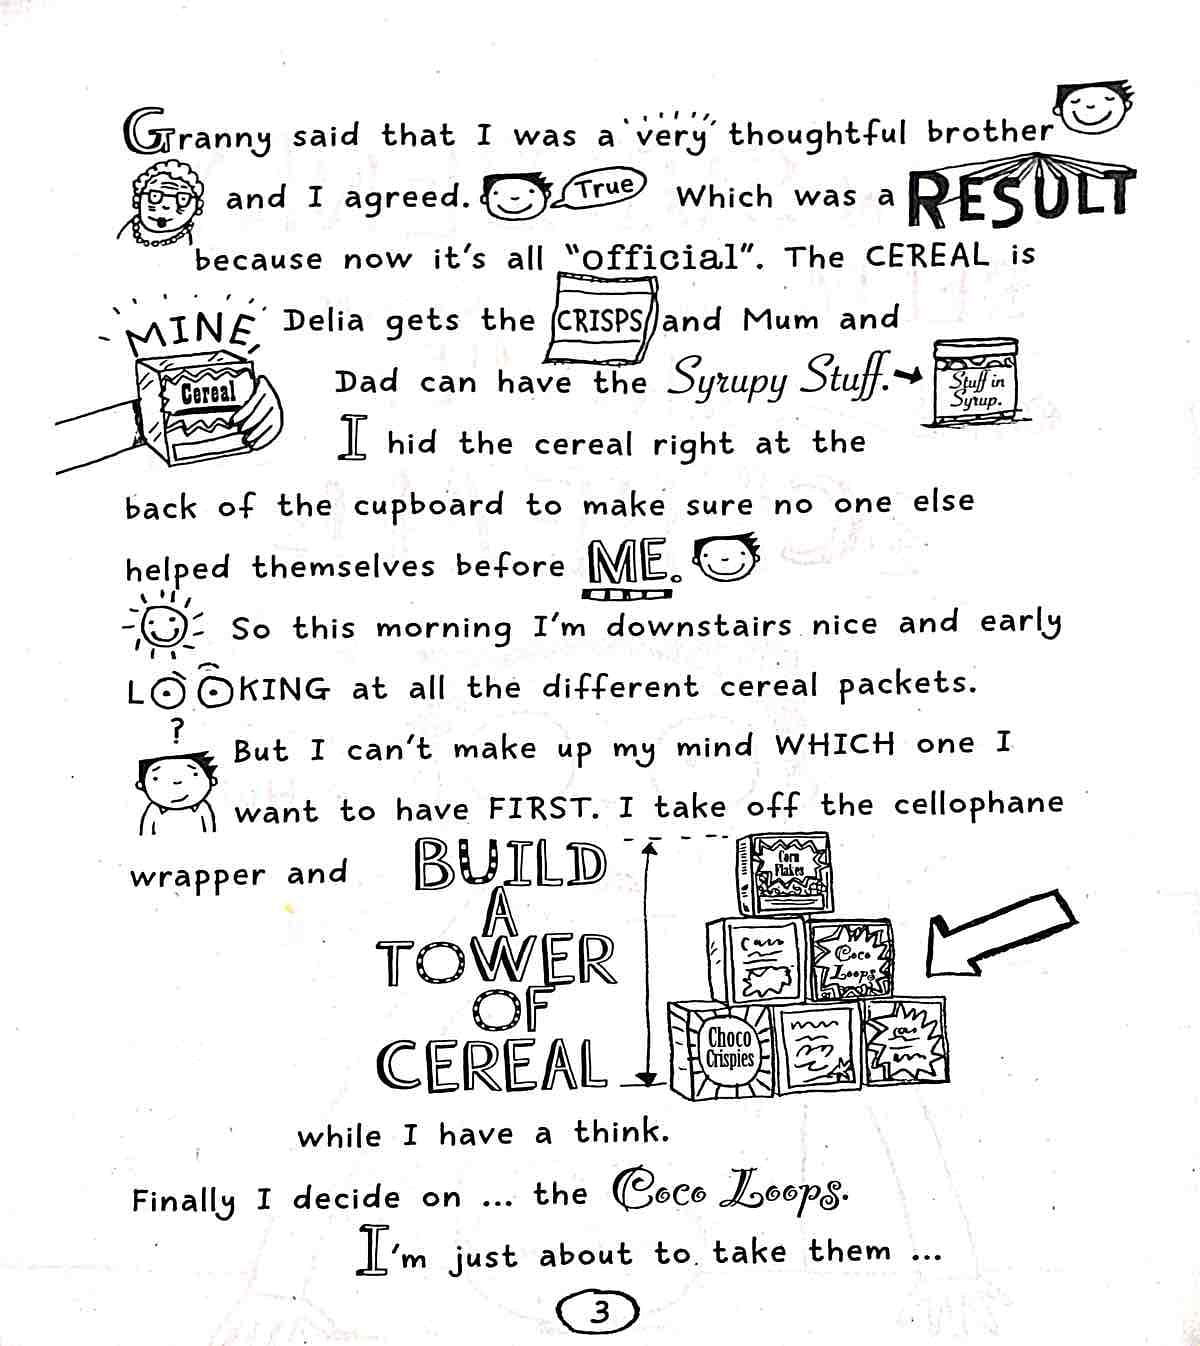 Granny said that I was a very thoughtful brother
and I agreed. True Which was a RESULT
because now it's all "official". The CEREAL is
MINE, Delia gets the CRISPS and Mum and
Cereal
Dad can have the Syrupy Stuff. Stuff in Syrup.
I hid the cereal right at the
back of the cupboard to make sure no one else
helped themselves before ME.
So this morning I'm downstairs nice and early
LOOKING at all the different cereal packets.
?
But I can't make up my mind WHICH one I
want to have FIRST. I take off the cellophane
wrapper and BUILD
A
TOWER
OF
CEREAL
Corn
Flakes
Coco
Loops
Choco
Crispies
while I have a think.
Finally I decide on ... the Coco Loops.
I'm just about to take them ...
3